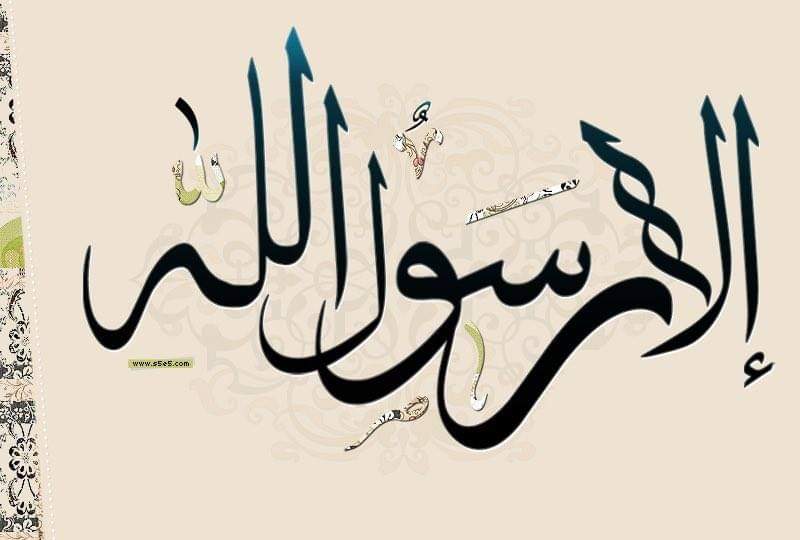 إلا رسول الله
www.s5e5.com